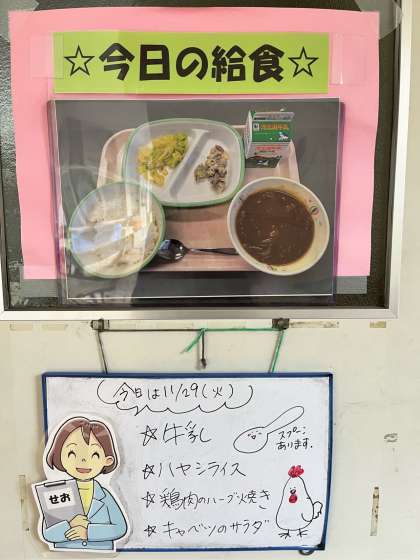 ☆今日の給食☆
今日は11/29(火)
☆牛乳
スプーン
あります。
☆ハヤシライス
☆鶏肉のハーブ焼き
☆キャベツのサラダ
せお